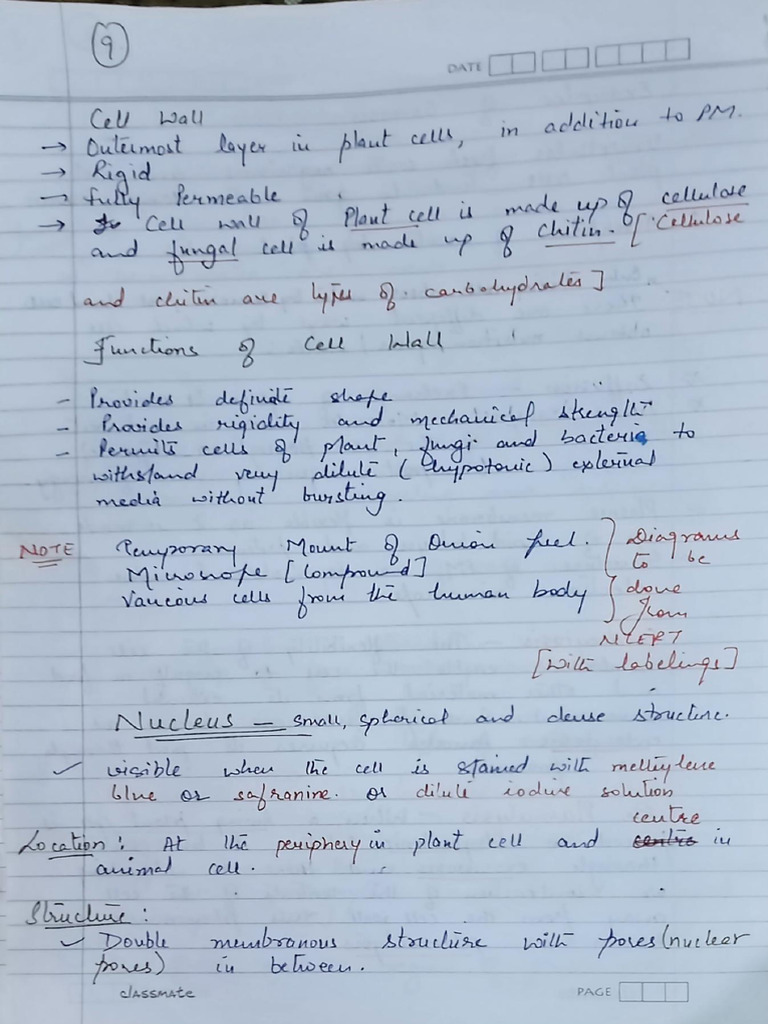 9
DATE
Cell Wall
→ Outermost layer in plant cells, in addition to PM.
→ Rigid
→ fully Permeable
→ Cell wall of Plant cell is made up of cellulose
and fungal cell is made up of chitin. [Cellulose
and chitin are types of carbohydrates]
Functions of Cell Wall
- Provides definite shape
- Provides rigidity and mechanical strength
- Permits cells of plant, fungi and bacteria to
withstand very dilute (hypotonic) external
media without bursting.
NOTE Temporary Mount of Onion peel. } Diagrams
to be
Microscope [Compound]
Various cells from the human body } done
from
NCERT
[with labelings]
Nucleus - small, spherical and dense structure.
✓ visible when the cell is stained with methylene
blue or safranine. or dilute iodine solution
centre
Location: At the periphery in plant cell and centre in
animal cell.
Structure:
✓ Double membranous structure with pores (nuclear
pores) in between.
classmate
PAGE